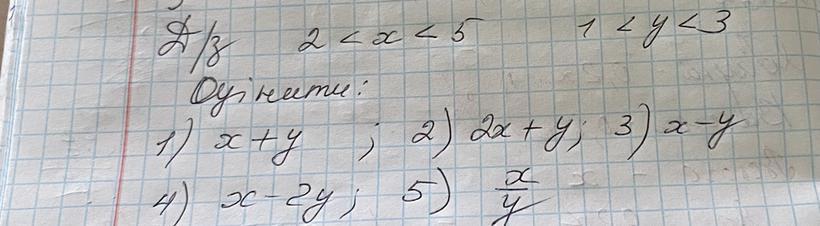 Д/з 2 < x < 5 1 < y < 3
Оцінити:
1) x + y ; 2) 2x + y; 3) x - y
4) x - 2y; 5) x/y